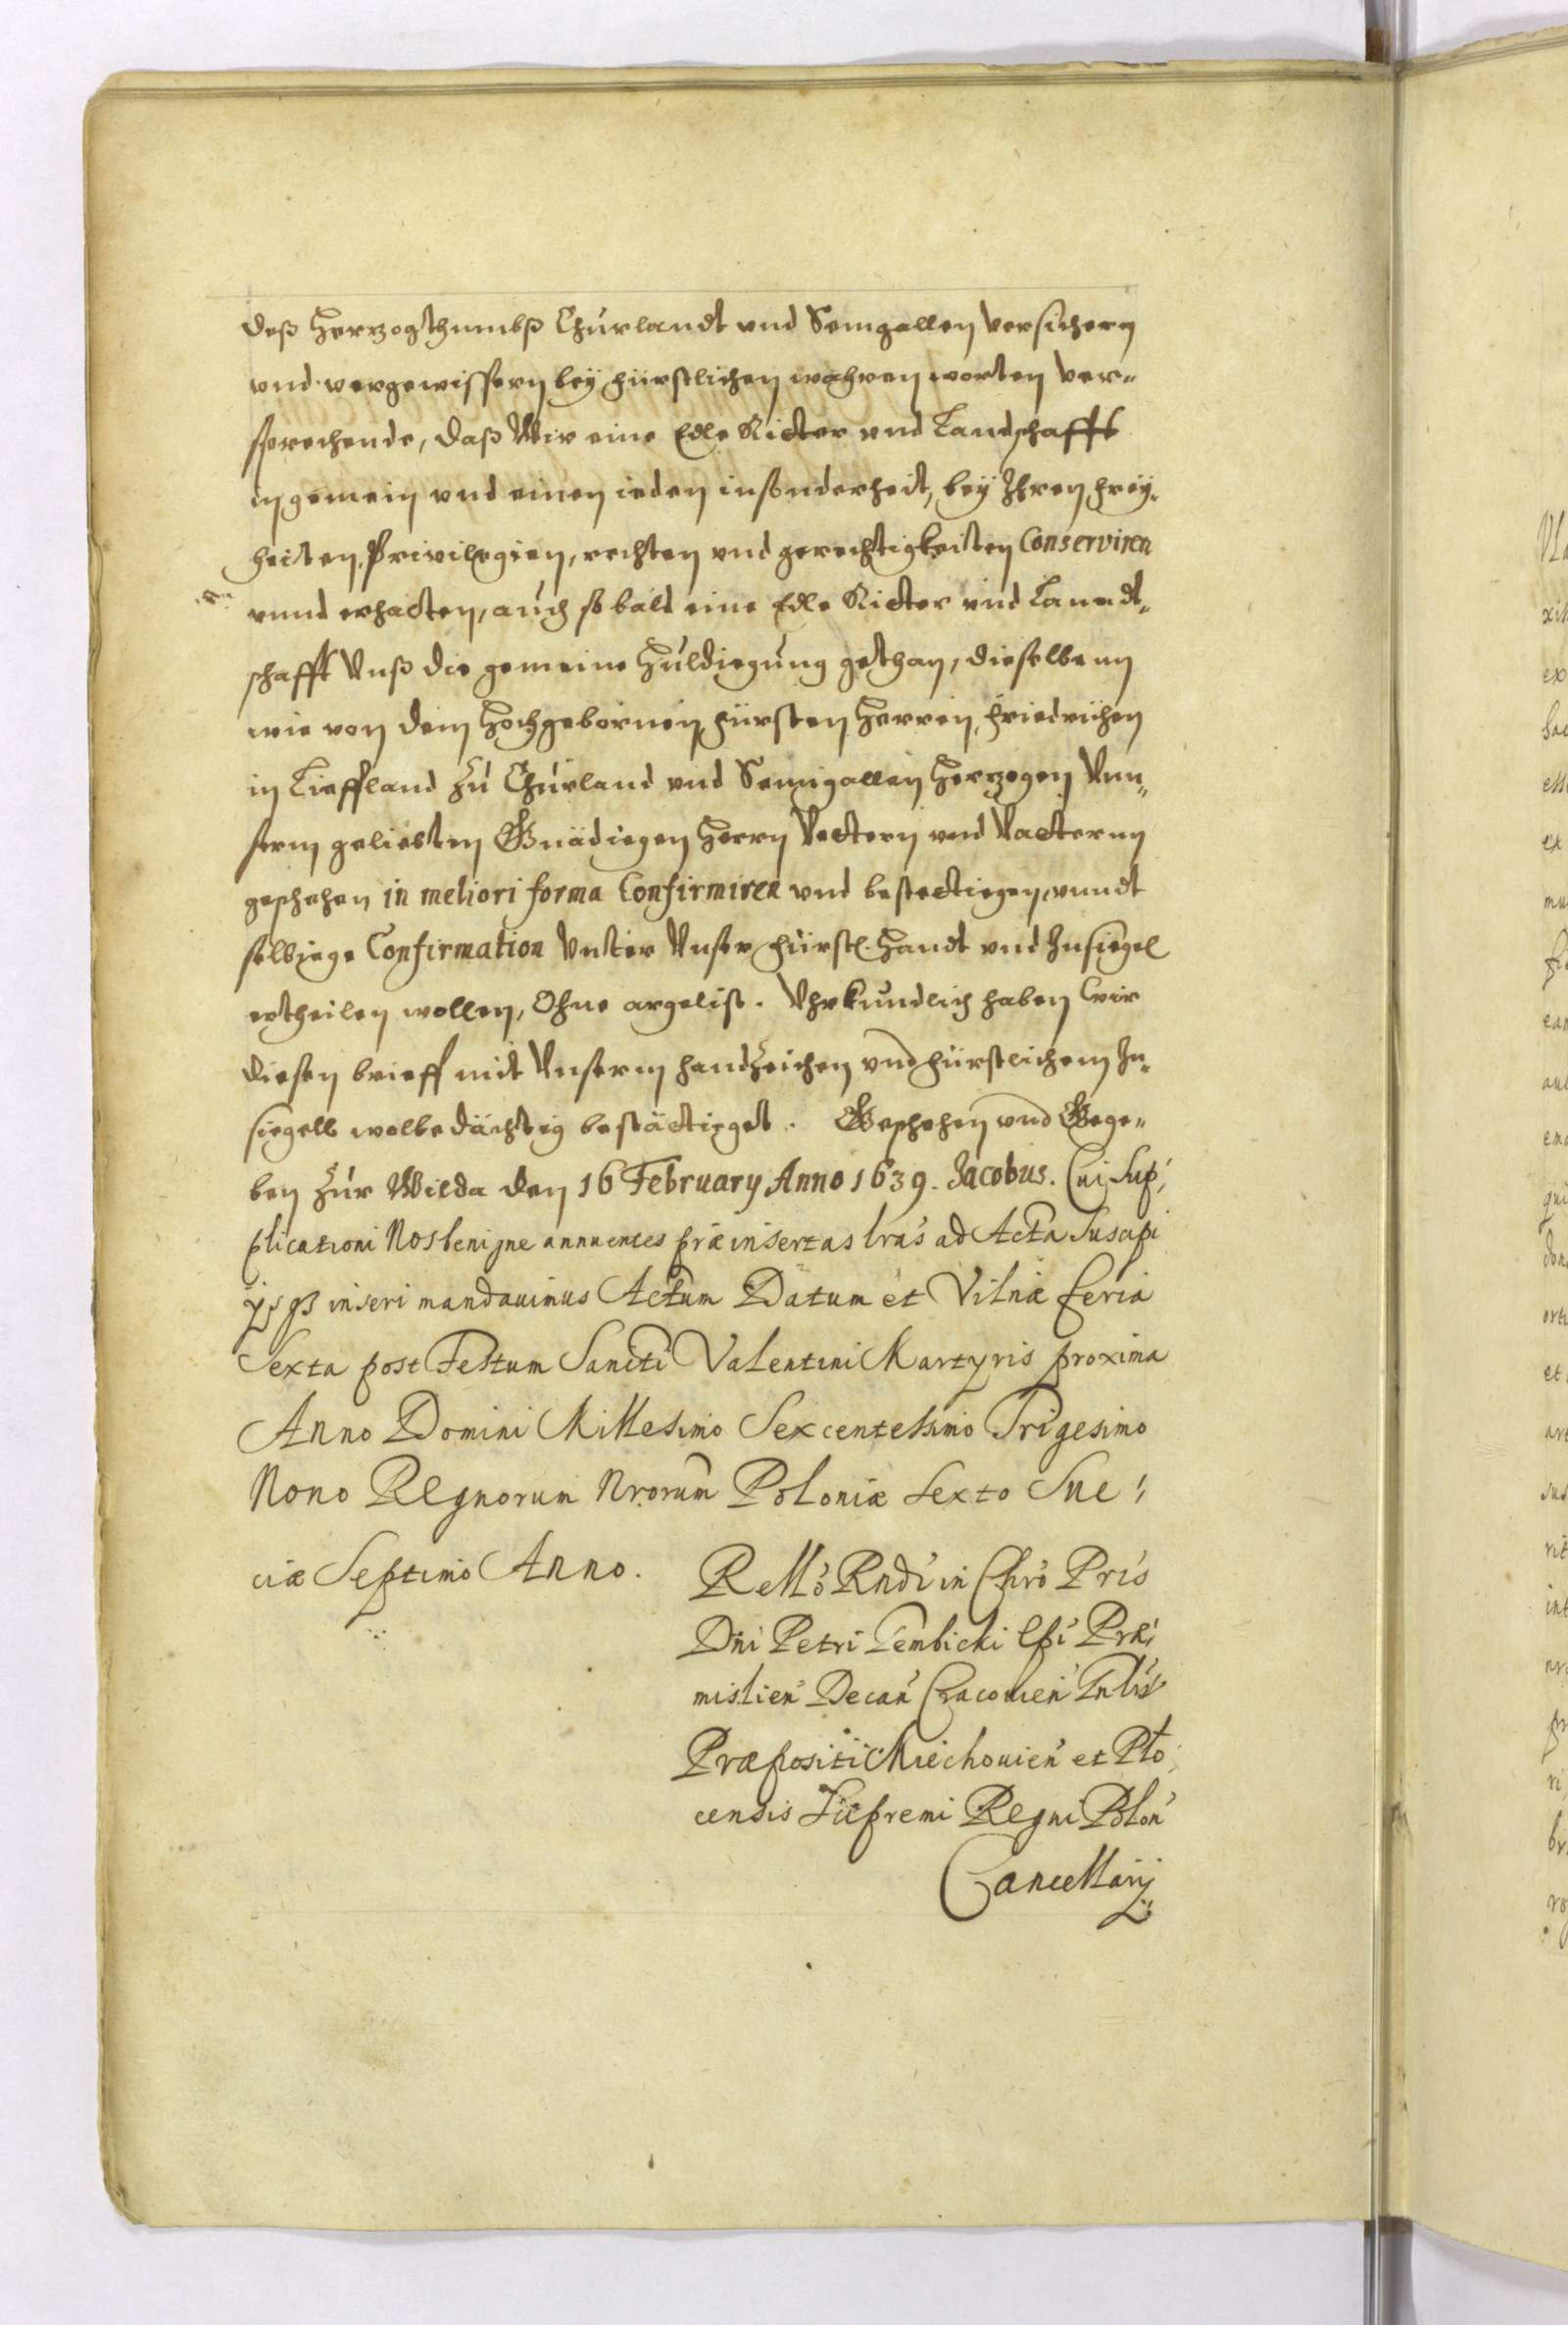 deß Herzogthumbß Churlandt vnd Semgallen versichern
vnd vergewissern bey fürstlichen wahren worten ver„
sprechende, daß Wir eine Edle Ritter vnd Landschafft
in gemein vnd einen ieden insonderheit, bey Ihren frey„
heiten, Privilegien, rechten vnd gerechtigkeiten Conserviren
vnnd erhalten, auch so bald eine Edle Ritter vnd Lanndt„
schafft Unß die gemeine Huldiegung gethan, dieselbenn
wie von dem Hochgebornen Fürsten Herren Friedrichen
in Lieffland zu Churland vnd Semigallen Herzogen Unn„
serm geliebten Gnädiegen Herrn Vettern vnd Vatternn
geschehen in meliori forma Confirmiren vnd bestettiegen, vnndt
selbiege Confirmation Unter Unser fürstl. Handt vnd Insiegel
ertheilen wollen, Ohne argelist. Uhrkundlich haben wir
diesen brieff mit Unserm handzeichen vnd fürstlichem In„
siegell wolbedächtig bestättieget. Geschehen vnd Gege„
ben Zur Wilda den 16 February Anno 1639. Jacobus. Cui Sup„
plicationi Nos benigne annuentes præinsertas lras ad Acta Suscipi
ijsqз inseri mandauimus Actum Datum et Vilnæ feria
Sexta post Festum Sancti Valentini Martyris proxima
Anno Domini Millesimo Sexcentessimo Trigesimo
Nono Regnorum Nrorum Poloniæ Sexto Sue„
ciæ Septimo Anno.
Rello Rndi in Chro Pris
Dni Petri Gembicki Epi Præ„
mislien Decan Cracouien
Præpositi Miechouien et Plo„
censis Supremi Regni Polon
Cancellarij